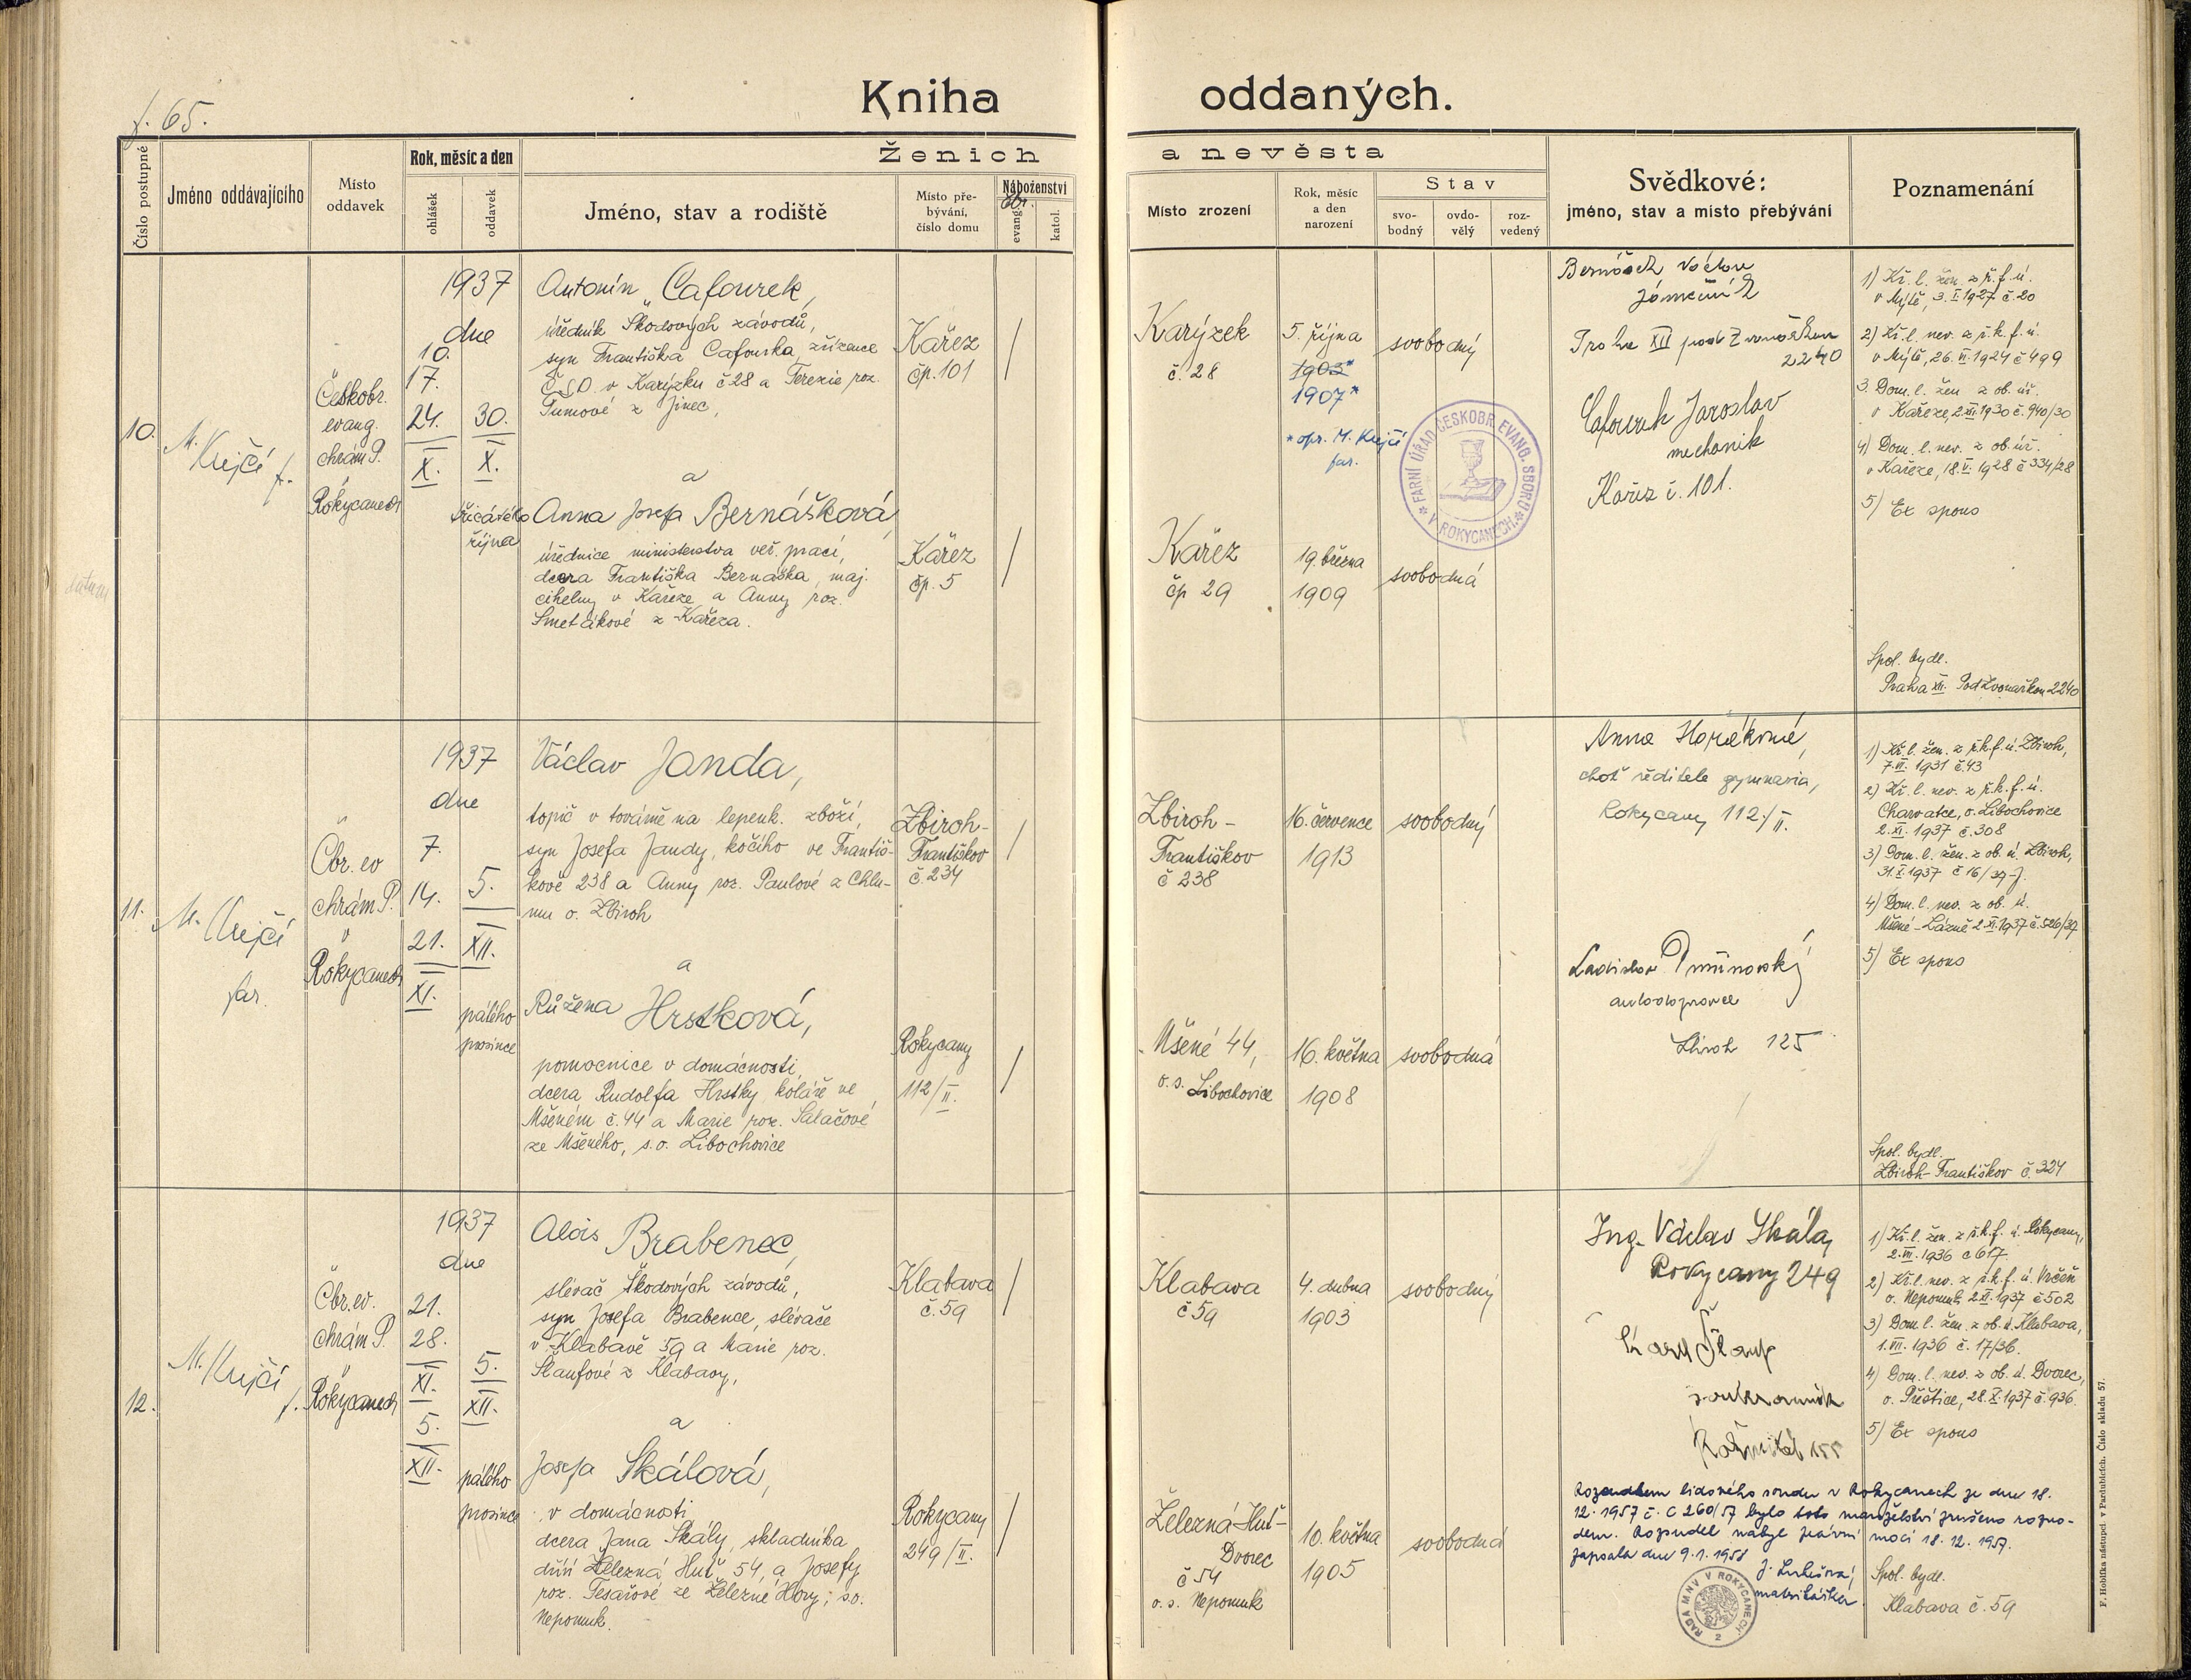 f. 65.
Kniha oddaných.
Číslo postupné
Jméno oddávajícího
Místo
oddavek
Rok, měsíc a den
ohlášek
oddavek
Ženich
a nevěsta
Jméno, stav a rodiště
Místo pře-
bývání,
číslo domu
Náboženství
čbr.
evang.
katol.
Místo zrození
Rok, měsíc
a den
narození
Stav
svo-
bodný
ovdo-
vělý
roz-
vedený
Svědkové:
jméno, stav a místo přebývání
Poznamenání
10.
M.
Krejčí f.
Českobr.
evang.
chrám P.
v
Rokycanech
1937
dne
10.
17.
24.
X.
30.
X.
třicátého
října
Antonín Cafourek,
úředník Škodových závodů,
syn Františka Cafourka, zřízence
ČSD v Karýzku č 28 a Terezie roz.
Tumové z Jinec,
a
Anna Josefa Bernášková,
úřednice ministerstva veř. prací,
dcera Františka Bernáška, maj.
cihelny v Kařeze a Anny roz.
Smetákové z Kařeza.
Kařez
čp. 101
Kařez
čp. 5
Karýzek
č. 28
5. října
1903*
1907*
* opr. M. Krejčí
far.
svobodný
FARNÍ ÚŘAD ČESKOBR. EVANG. SBORU
V ROKYCANECH
Kařez
čp 29
19. března
1909
svobodná
Bernášek Václav
zámečník
Praha XII pod Zvonařkou
2240
Cafourek Jaroslav
mechanik
Kařez č. 101.
1) Kř. l. žen. z ř. f. ú.
v Mýtě, 3. I. 1927 č 20
2) Kř. l. nev. z ř. k. f. ú.
v Mýtě, 26. VI. 1924 č 499
3. Dom. l. žen z ob. úř.
v Kařeze, 2. XI. 1930 č. 940/30
4) Dom. l. nev. z ob. úř.
v Kařeze, 18. V. 1928 č 334/28
5) Ex spons
Spol. bydl.
Praha XII. Pod Zvonařkou 2240
11.
M. Krejčí
far.
Čbr. ev
chrám P.
v
Rokycanech
1937
dne
7.
14.
21.
XI.
5.
XII.
pátého
prosince
Václav Janda,
topič v továrně na lepenk. zboží,
syn Josefa Jandy, kočího ve Františ-
kově 238 a Anny roz. Paulové z Chlu-
mu o. Zbiroh
a
Růžena Hrstková,
pomocnice v domácnosti,
dcera Rudolfa Hrstky koláře ve
Mšeném č. 44 a Marie roz. Salačové
ze Mšeného, s. o. Libochovice
Zbiroh-
Františkov
č. 234
Rokycany
112/II.
Zbiroh-
Františkov
č 238
16. července
1913
svobodný
Mšené 44,
o. s. Libochovice
16. května
1908
svobodná
Anna Horáková,
choť ředitele gymnasia,
Rokycany 112/II.
Ladislav
autodopravce
Zbiroh 125
1) Kř. l. žen. z ř. k. f. ú. Zbiroh,
7. VI. 1931 č. 43
2) Kř. l. nev. z ř. k. f. ú.
Charvatce, o. Libochovice
2. XI. 1937 č. 308
3) Dom. l. žen. z ob. ú. Zbiroh,
31. X. 1937 č 16/37-J.
4) Dom. l. nev. z ob. ú.
Mšené-Lázně 2. XI. 1937 č. 526/37
5) Ex spons
Spol. bydl.
Zbiroh-Františkov č. 324
12.
M. Krejčí
f.
Čbr. ev.
chrám P.
v
Rokycanech
1937
dne
21.
28.
XI.
5.
XII.
5.
XII.
pátého
prosince
Alois Brabenec,
slévač Škodových závodů,
syn Josefa Brabence, slévače
v Klabavě 59 a Marie roz.
Štaufové z Klabavy,
a
Josefa Skálová,
v domácnosti
dcera Jana Skály, skladníka
dříví Železná Huť 54, a Josefy
roz. Tesařové ze Železné Hory, s. o.
Nepomuk.
Klabava
č. 59
Rokycany
249/II.
Klabava
č 59
4. dubna
1903
svobodný
Železná Huť-
Dvorec
č 54
o. s. Nepomuk
10. května
1905
svobodná
Ing. Václav Skála,
Rokycany 249
Karel
soukromník
Rožmitál
Rozsudkem lidového soudu v Rokycanech ze dne 18.
12. 1957 č. C 260/57 bylo toto manželství zrušeno rozvo-
dem. Rozsudek nabyl právní moci 18. 12. 1957.
Zapsala dne 9. 1. 1958
matrikářka
RADA MNV V ROKYCANECH
2
1) Kř. l. žen. z ř. k. f. ú. Rokycany,
2. VII. 1936 č 617
2) Kř. l. nev. z ř. k. f. ú. Vrčeň
o. Nepomuk 2. XI. 1937 č 502
3) Dom. l. žen. z ob. ú. Klabava,
1. VII. 1936 č. 17/36.
4) Dom. l. nev. z ob. ú. Dvorec,
o. Přeštice, 28. X. 1937 č. 936.
5) Ex spons
Spol. bydl.
Klabava č. 59
F. Hoblíka nástupci. v Pardubicích. Číslo skladu 57.